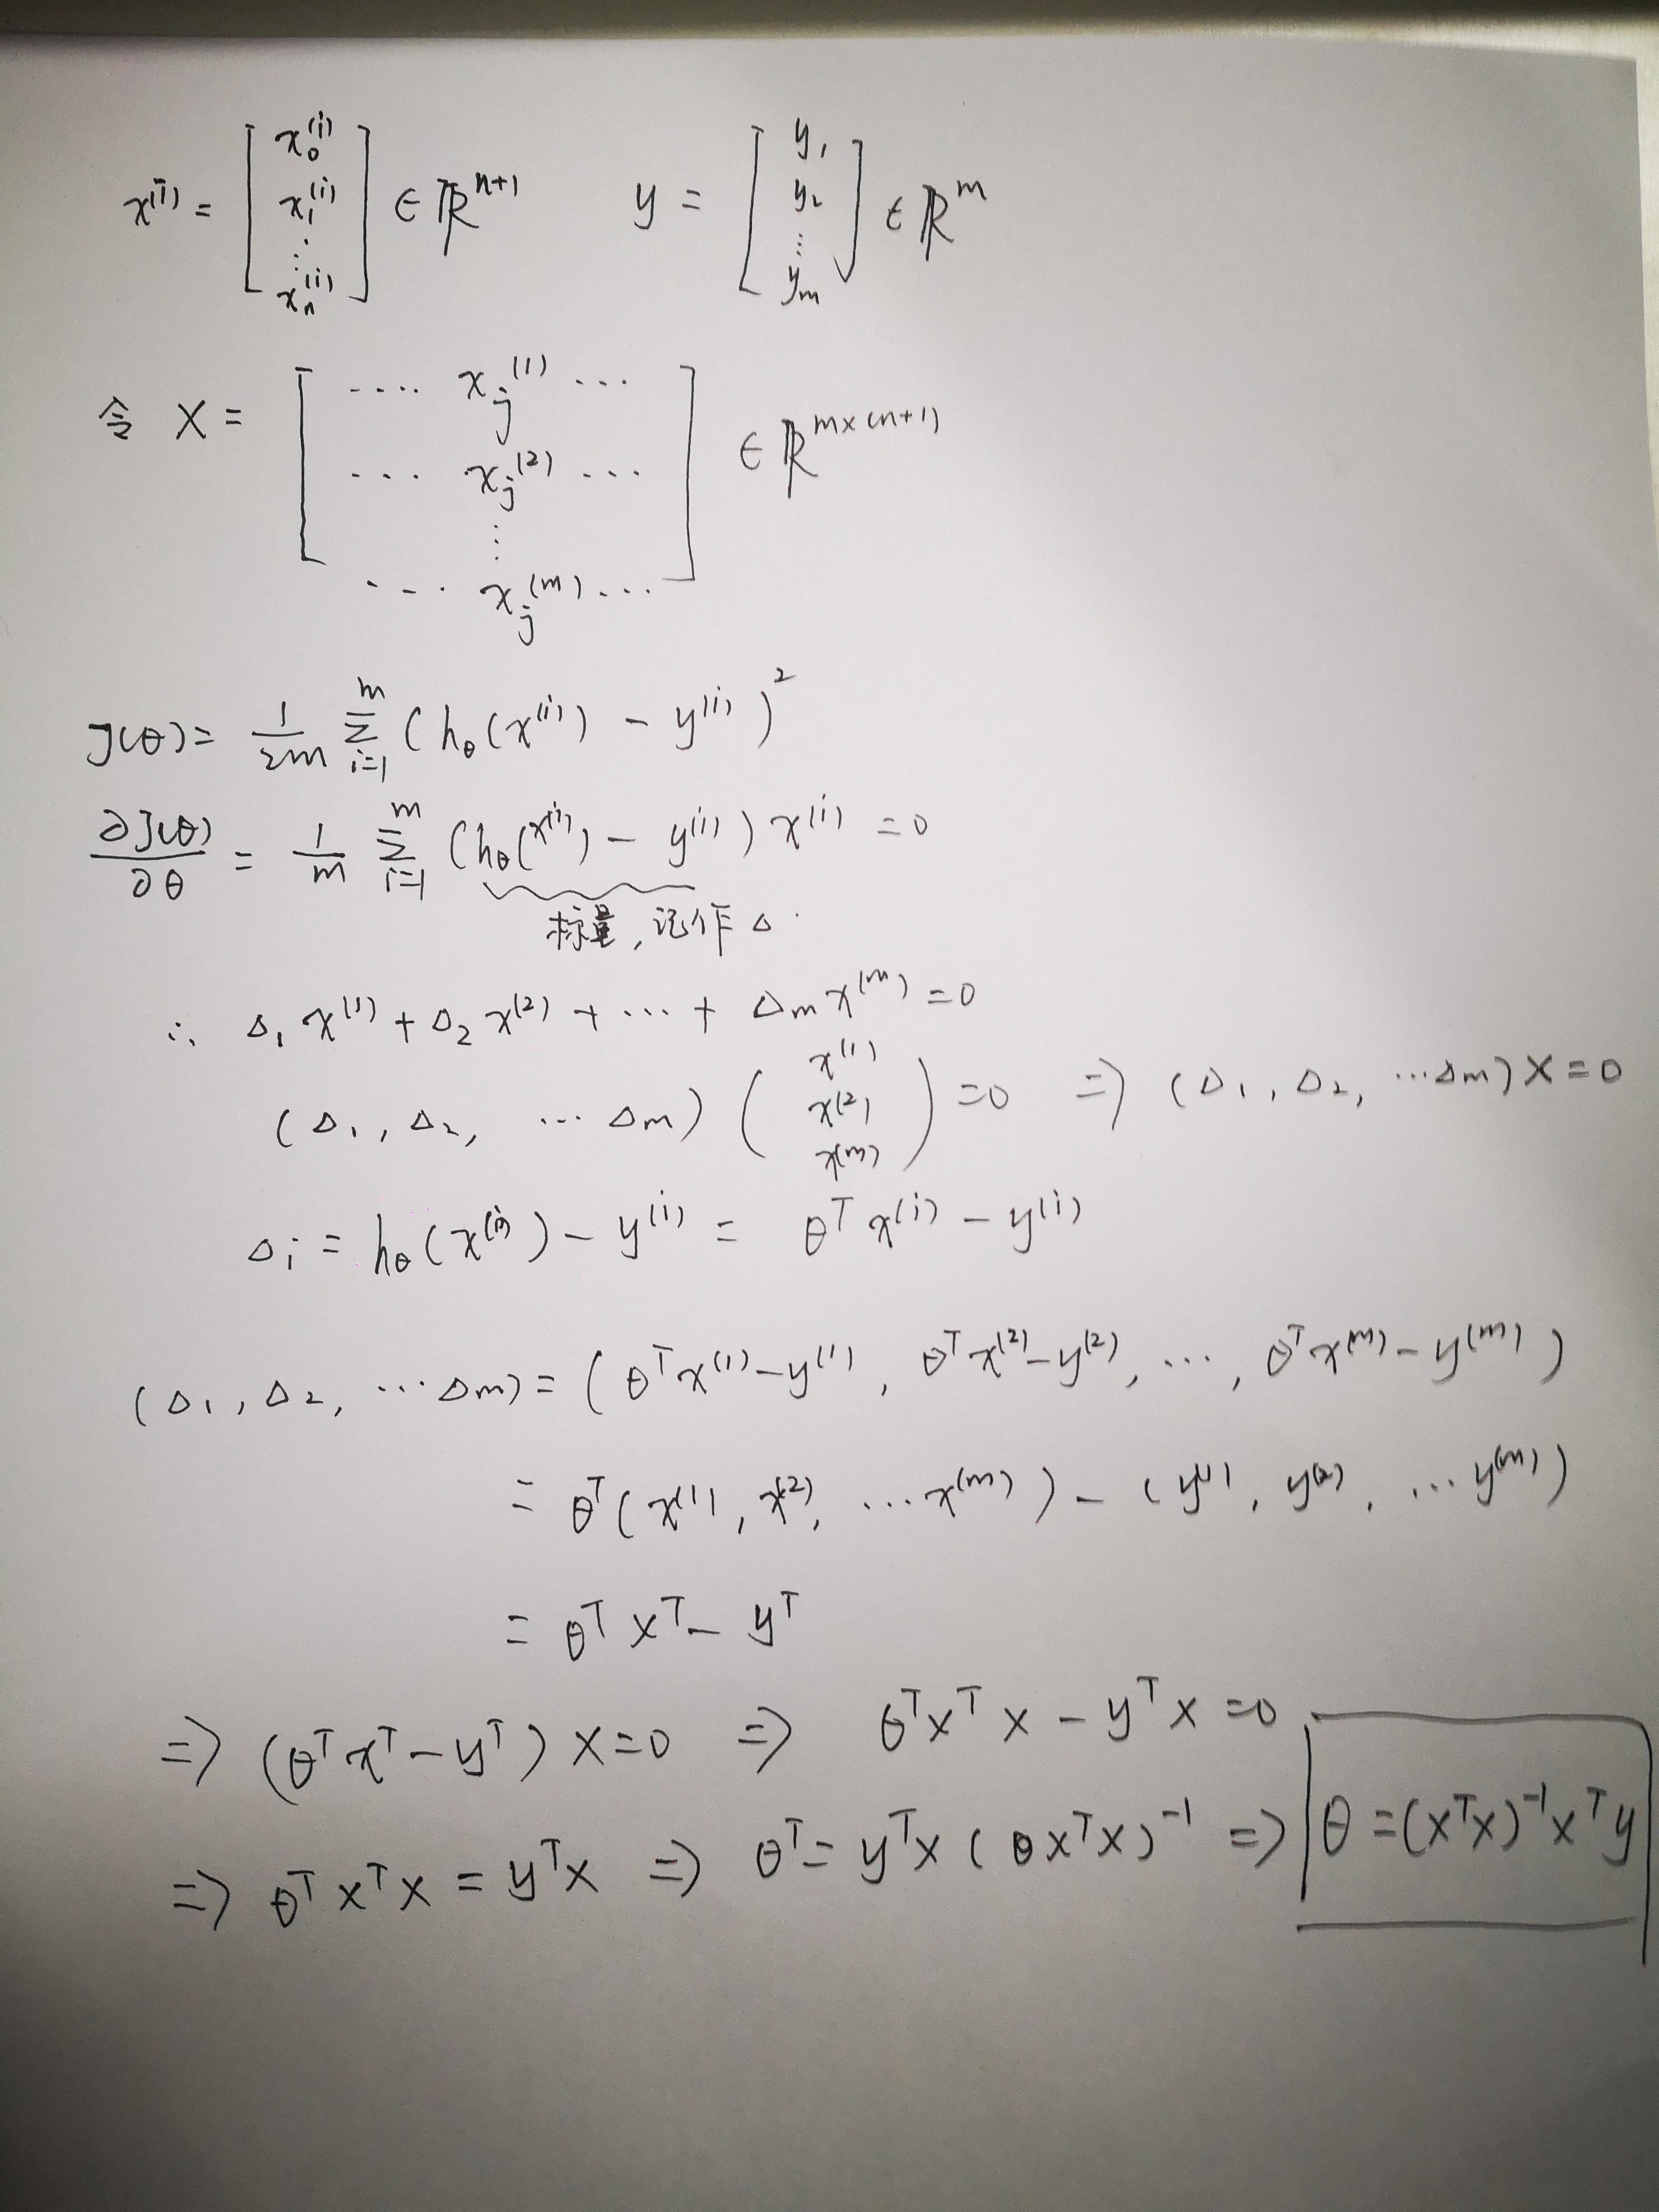 x⁽ⁱ⁾ = [x₀⁽ⁱ⁾ x₁⁽ⁱ⁾ ⋮ xₙ⁽ⁱ⁾] ∈ ℝⁿ⁺¹ y = [y₁ y₂ ⋮ yₘ] ∈ ℝᵐ
令 X = [···· xⱼ⁽¹⁾ ···
··· xⱼ⁽²⁾ ···
⋮
··· xⱼ⁽ᵐ⁾ ···] ∈ ℝ^{m×(n+1)}
J(θ) = 1/2m Σ_{i=1}^{m} (h_θ(x⁽ⁱ⁾) − y⁽ⁱ⁾)²
∂J(θ)/∂θ = 1/m Σ_{i=1}^{m} (h_θ(x⁽ⁱ⁾) − y⁽ⁱ⁾) x⁽ⁱ⁾ = 0
标量, 记作 Δ
∴ Δ₁ x⁽¹⁾ + Δ₂ x⁽²⁾ + ··· + Δₘ x⁽ᵐ⁾ = 0
(Δ₁, Δ₂, ··· Δₘ) (x⁽¹⁾ x⁽²⁾ x⁽ᵐ⁾) = 0 ⇒ (Δ₁, Δ₂, ··· Δₘ) X = 0
Δᵢ = h_θ(x⁽ⁱ⁾) − y⁽ⁱ⁾ = θᵀ x⁽ⁱ⁾ − y⁽ⁱ⁾
(Δ₁, Δ₂, ··· Δₘ) = (θᵀx⁽¹⁾ − y⁽¹⁾, θᵀx⁽²⁾ − y⁽²⁾, ···, θᵀx⁽ᵐ⁾ − y⁽ᵐ⁾)
= θᵀ(x⁽¹⁾, x⁽²⁾, ··· x⁽ᵐ⁾) − (y⁽¹⁾, y⁽²⁾, ··· y⁽ᵐ⁾)
= θᵀ Xᵀ − yᵀ
⇒ (θᵀ xᵀ − yᵀ) X = 0 ⇒ θᵀXᵀX − yᵀX = 0
⇒ θᵀ XᵀX = yᵀX ⇒ θᵀ = yᵀX (θXᵀX)⁻¹ ⇒ θ = (XᵀX)⁻¹Xᵀy